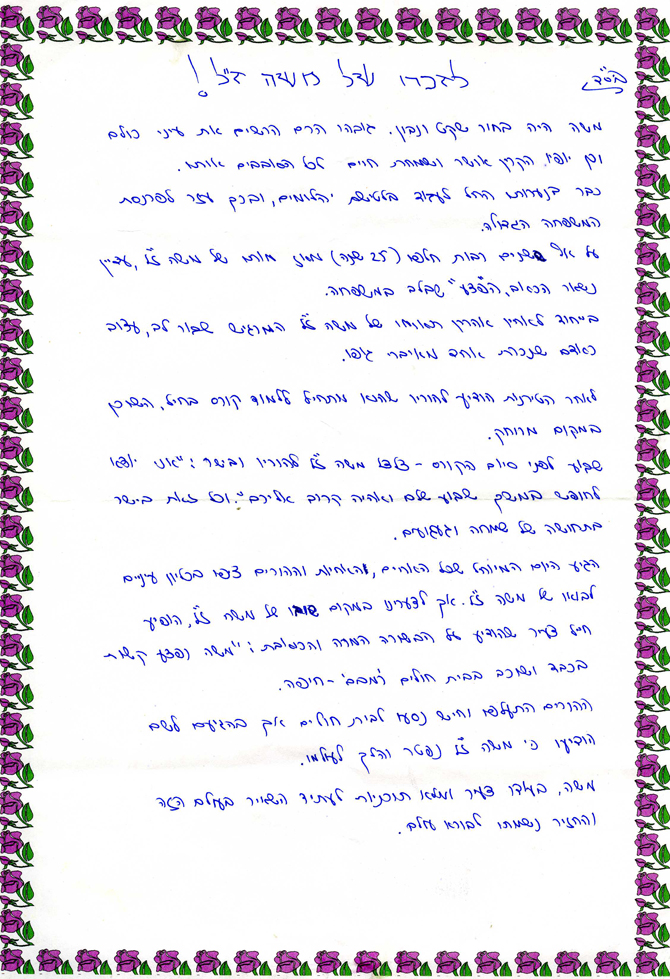 בס"ד
לזכרו של משה ז"ל!
משה היה בחור שקט ונבון. גובהו הרם הרשים את עיני כולם
וכן יופיו הקרין אושר ושמחת חיים לכל הסובבים אותו.
כבר בנערותו החל לעבוד בלטישת יהלומים, ובכך עזר לפרנסת
המשפחה הגדולה.
על אף ששנים רבות חלפו (25 שנה) מאז מותו של משה ז"ל, עדיין
נשאר הכאב, ה"פצע" שבלב במשפחה.
בייחוד לאחיו אהרון תאומו של משה ז"ל המרגיש שבור לב, עצוב
כאדם שנכרת אחד מאיברי גופו.
לאחר הטירונות הודיע להוריו שהוא מתחיל ללמוד קורס בחיל, השוכן
במקום מרוחק.
שבוע לפני סיום הקורס - צלצל משה ז"ל להוריו ובישר: "אני יוצא
לחופש במשך שבוע שלם ואהיה קרוב אליכם". וכל זאת בישר
בתחושה של שמחה וגעגועים.
הגיע היום המיוחל שכל האחים, והאחיות וההורים צפו בכליון עיניים
לבואו של משה ז"ל. אך לצערינו במקום שובו של משה ז"ל, הופיע
חייל צעיר שהודיע על הבשורה המרה והכואבת: "משה נפצע קשות
בכבד ושוכב בבית חולים רמב"ם - חיפה.
ההורים התעלפו וחיש נסעו לבית חולים אך בהגיעם לשם
הודיעו כי משה ז"ל נפטר והלך לעולמו.
משה, בעודו צעיר ומלא תוכניות לעתיד השאיר בעולם הזה
והחזיר נשמתו לבורא עולם.